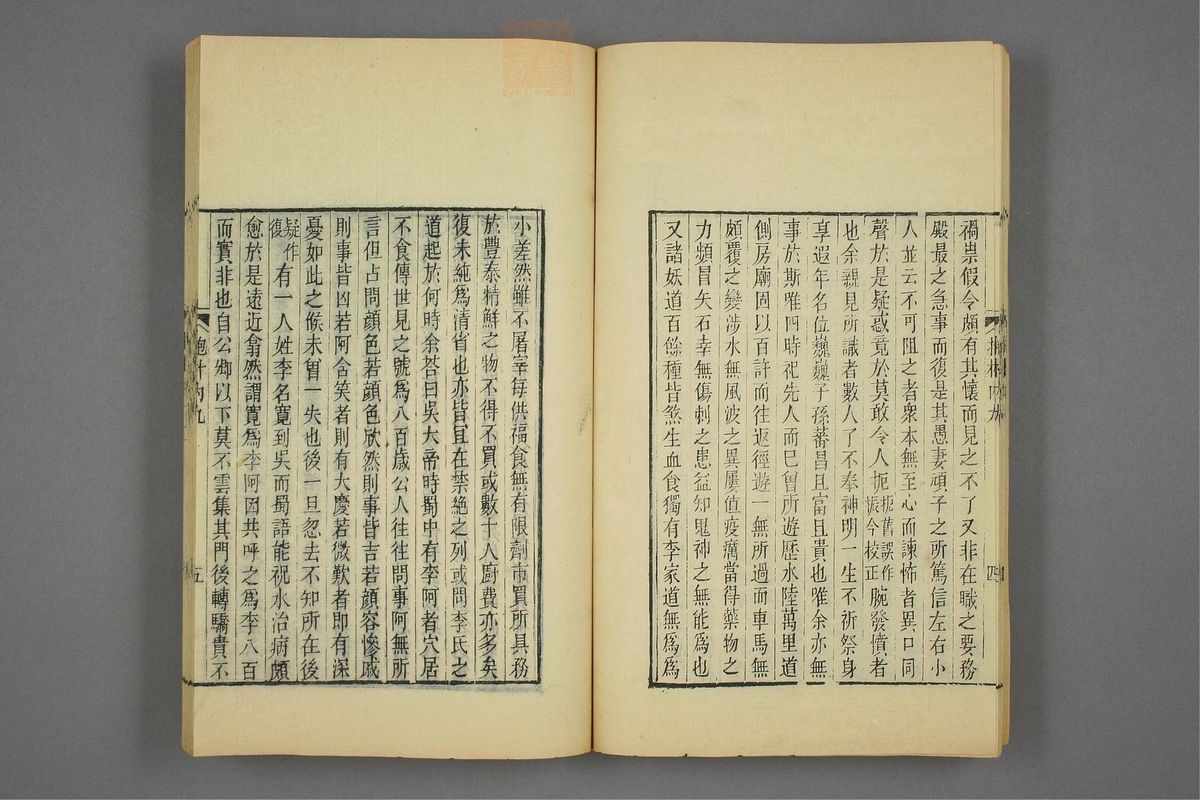 禍祟假令頗有其懷而見之不了又非在職之要務
殿最之急事而復是其愚妻頑子之所篤信左右小
人並云不可阻之者衆本無至心而諫怖者異口同
聲於是疑惑竟於莫敢令人扼扼舊誤作振今校正腕發憤者
也余親見所識者數人了不奉神明一生不祈祭身
享遐年名位巍巍子孫蕃昌且富且貴也唯余亦無
事於斯唯四時祀先人而已曾所遊歷水陸萬里道
側房廟固以百許而往返徑遊一無所過而車馬無
頗覆之變涉水無風波之異屢值疫癘當得藥物之
力頻冒矢石幸無傷刺之患益知鬼神之無能爲也
又諸妖道百餘種皆煞生血食獨有李家道無爲爲
四
小差然雖不屠宰每供福食無有限劑市買所具務
於豐泰精鮮之物不得不買或數十人廚費亦多矣
復未純爲淸省也亦皆且在禁絕之列或問李氏之
道起於何時余荅曰吳大帝時蜀中有李阿者穴居
不食傳世見之號爲八百歲公人往往問事阿無所
言但占問顏色若顏色欣然則事皆吉若顏容慘戚
則事皆凶若阿含笑者則有大慶若微歎者即有深
憂如此之候未曾一失也後一旦忽去不知所在後
疑作復有一人姓李名寬到吳而蜀語能祝水治病頗
愈於是遠近翕然謂寬爲李阿因共呼之爲李八百
而實非也自公卿以下莫不雲集其門後轉驕貴不
抱朴內九
五